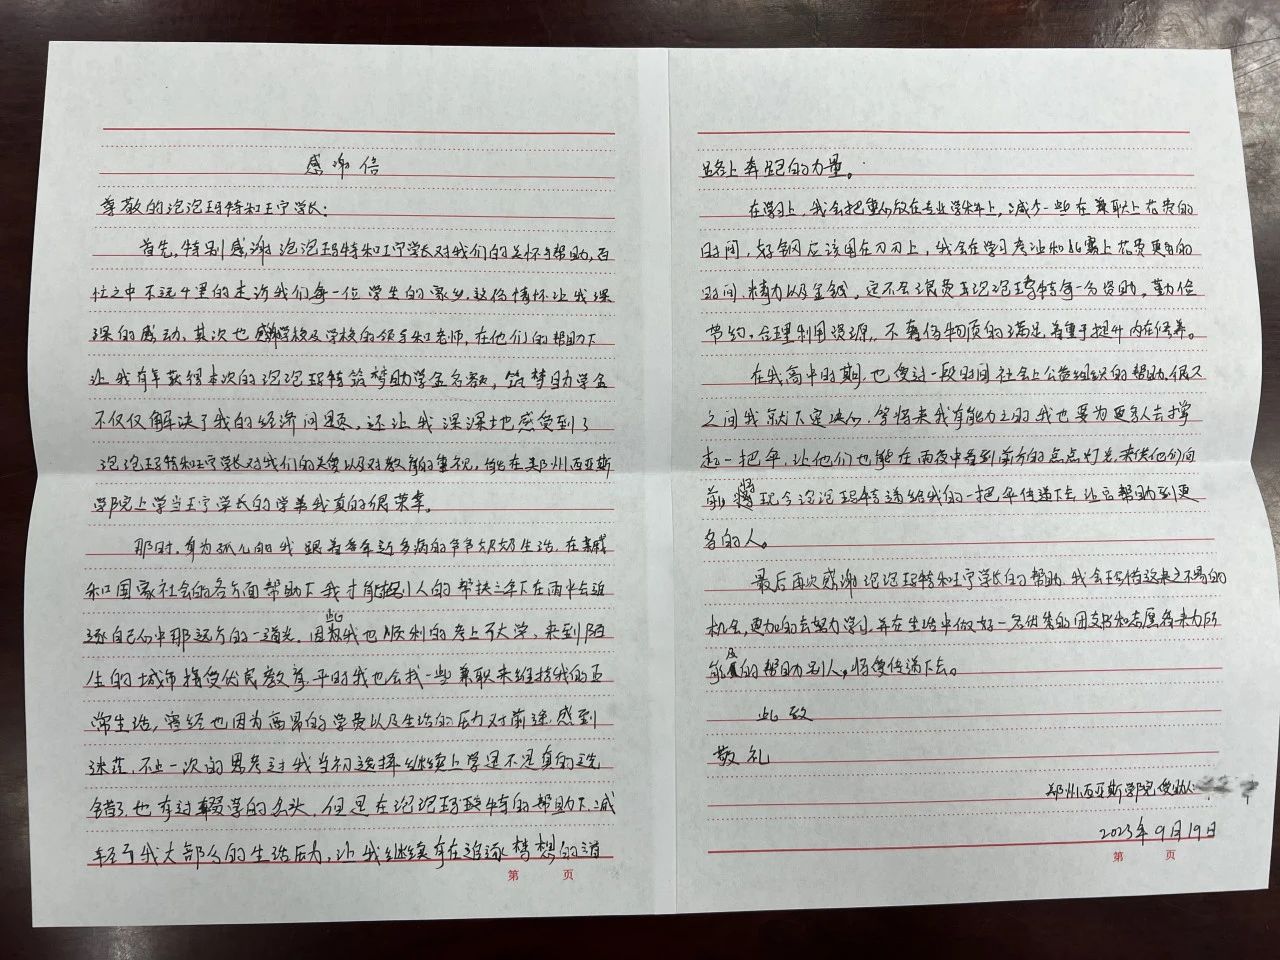 感谢信
尊敬的泡泡玛特和王宁学长：
首先，特别感谢泡泡玛特和王宁学长对我们的关怀与帮助，百
忙之中不远千里的走访我们每一位学生的家乡，这份情怀让我深
深的感动。其次也感谢学校及学校的领导和老师，在他们的帮助下
让我有幸获得本次的泡泡玛特筑梦助学金名额，筑梦助学金
不仅仅解决了我的经济问题，还让我深深地感受到了
泡泡玛特和王宁学长对我们的关爱以及对教育的重视，能在郑州西亚斯
学院上学当王宁学长的学弟我真的很荣幸。
那时，身为孤儿的我跟着年近多病的爷爷奶奶生活，在亲戚
和国家社会的各方面帮助下我才能在别人的帮扶之下在雨中去追
逐自己心中那远方的一道光，因此我也顺利的考上了大学，来到陌
生的城市接受优良教育，平时我也会找一些兼职来维持我的正
常生活，曾经也因为高昂的学费以及生活的压力对前途感到
迷茫，不止一次的思考过我当初选择继续上学是不是真的选
错了，也有过辍学的念头，但是在泡泡玛特的帮助下，减
轻了我大部分的生活压力，让我继续有在追逐梦想的道
路上奔跑的力量。
在学习上，我会把重心放在专业学科上，减少一些在兼职上花费的
时间，好钢应该用在刀刃上，我会在学习考证和比赛上花费更多的
时间、精力以及金钱，定不会浪费泡泡玛特每一分资助，勤俭
节约，合理利用资源，不奢侈物质的满足，着重于提升内在修养。
在我高中时期，也受过一段时间社会上公益组织的帮助，很久
之间我就下定决心，等将来我有能力之时我也要为更多人去撑
起一把伞，让他们也能在雨夜中看到前方的点点灯光来供他们向
前，将现今泡泡玛特递给我的一把伞传递下去，让它帮助到更
多的人。
最后再次感谢泡泡玛特和王宁学长的帮助，我会珍惜这来之不易的
机会，更加的去努力学习，并在生活中做好一名优秀的团支书和志愿者来力所
能及的帮助别人，将爱传递下去。
此致
敬礼
郑州西亚斯学院受助人：
2023年9月19日
第 页
第 页